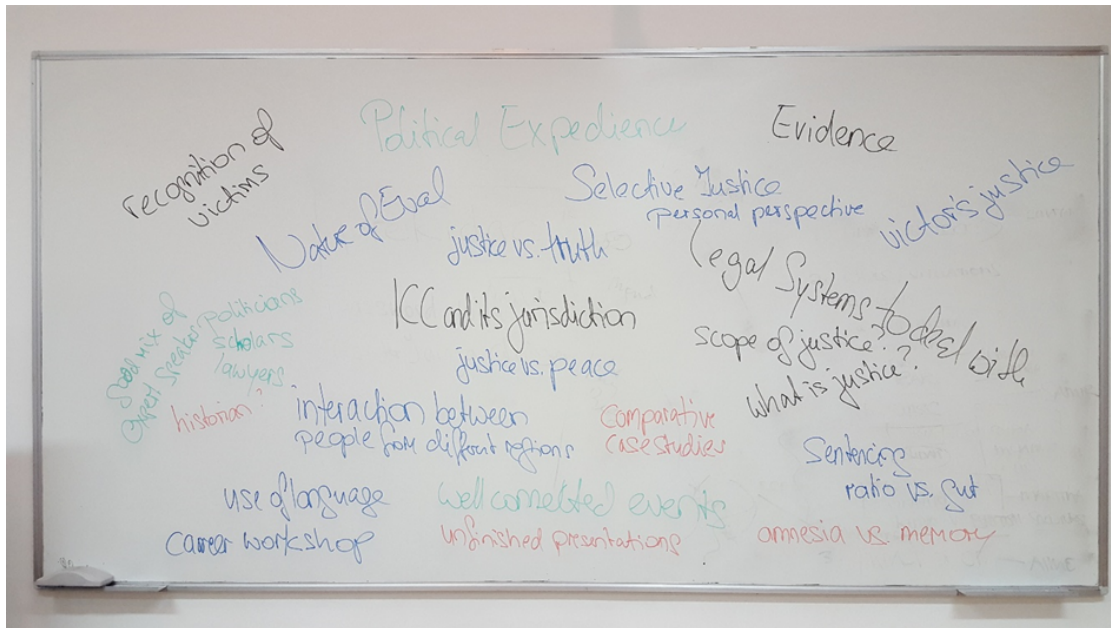 Political Expedience
Evidence
recognition of
victims
Selective Justice
personal perspective
victor's justice
Nature of Eval
justice vs. truth
legal Systems to deal with
ICC and its jurisdiction
scope of justice?
what is justice?
good mix of
expert speakers
politicians
scholars
lawyers
historian?
justice vs. peace
interaction between
people from different regions
comparative
case studies
Sentencing
ratio vs. gut
use of language
well connected events
career workshop
unfinished presentations
amnesia vs. memory